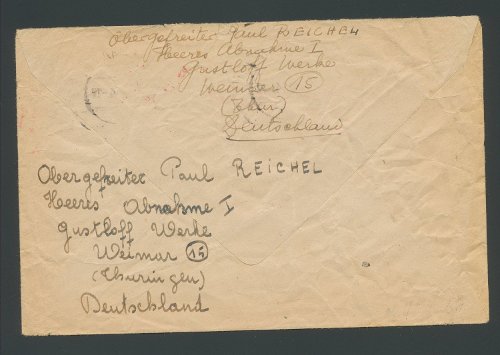 Obergefreiter Paul REICHEL
Heeres Abnahme I
Gustloff Werke
Weimar (15)
(Thür.)
Deutschland
Obergefreiter Paul REICHEL
Heeres Abnahme I
Gustloff Werke
Weimar (15)
(Thuringen)
Deutschland